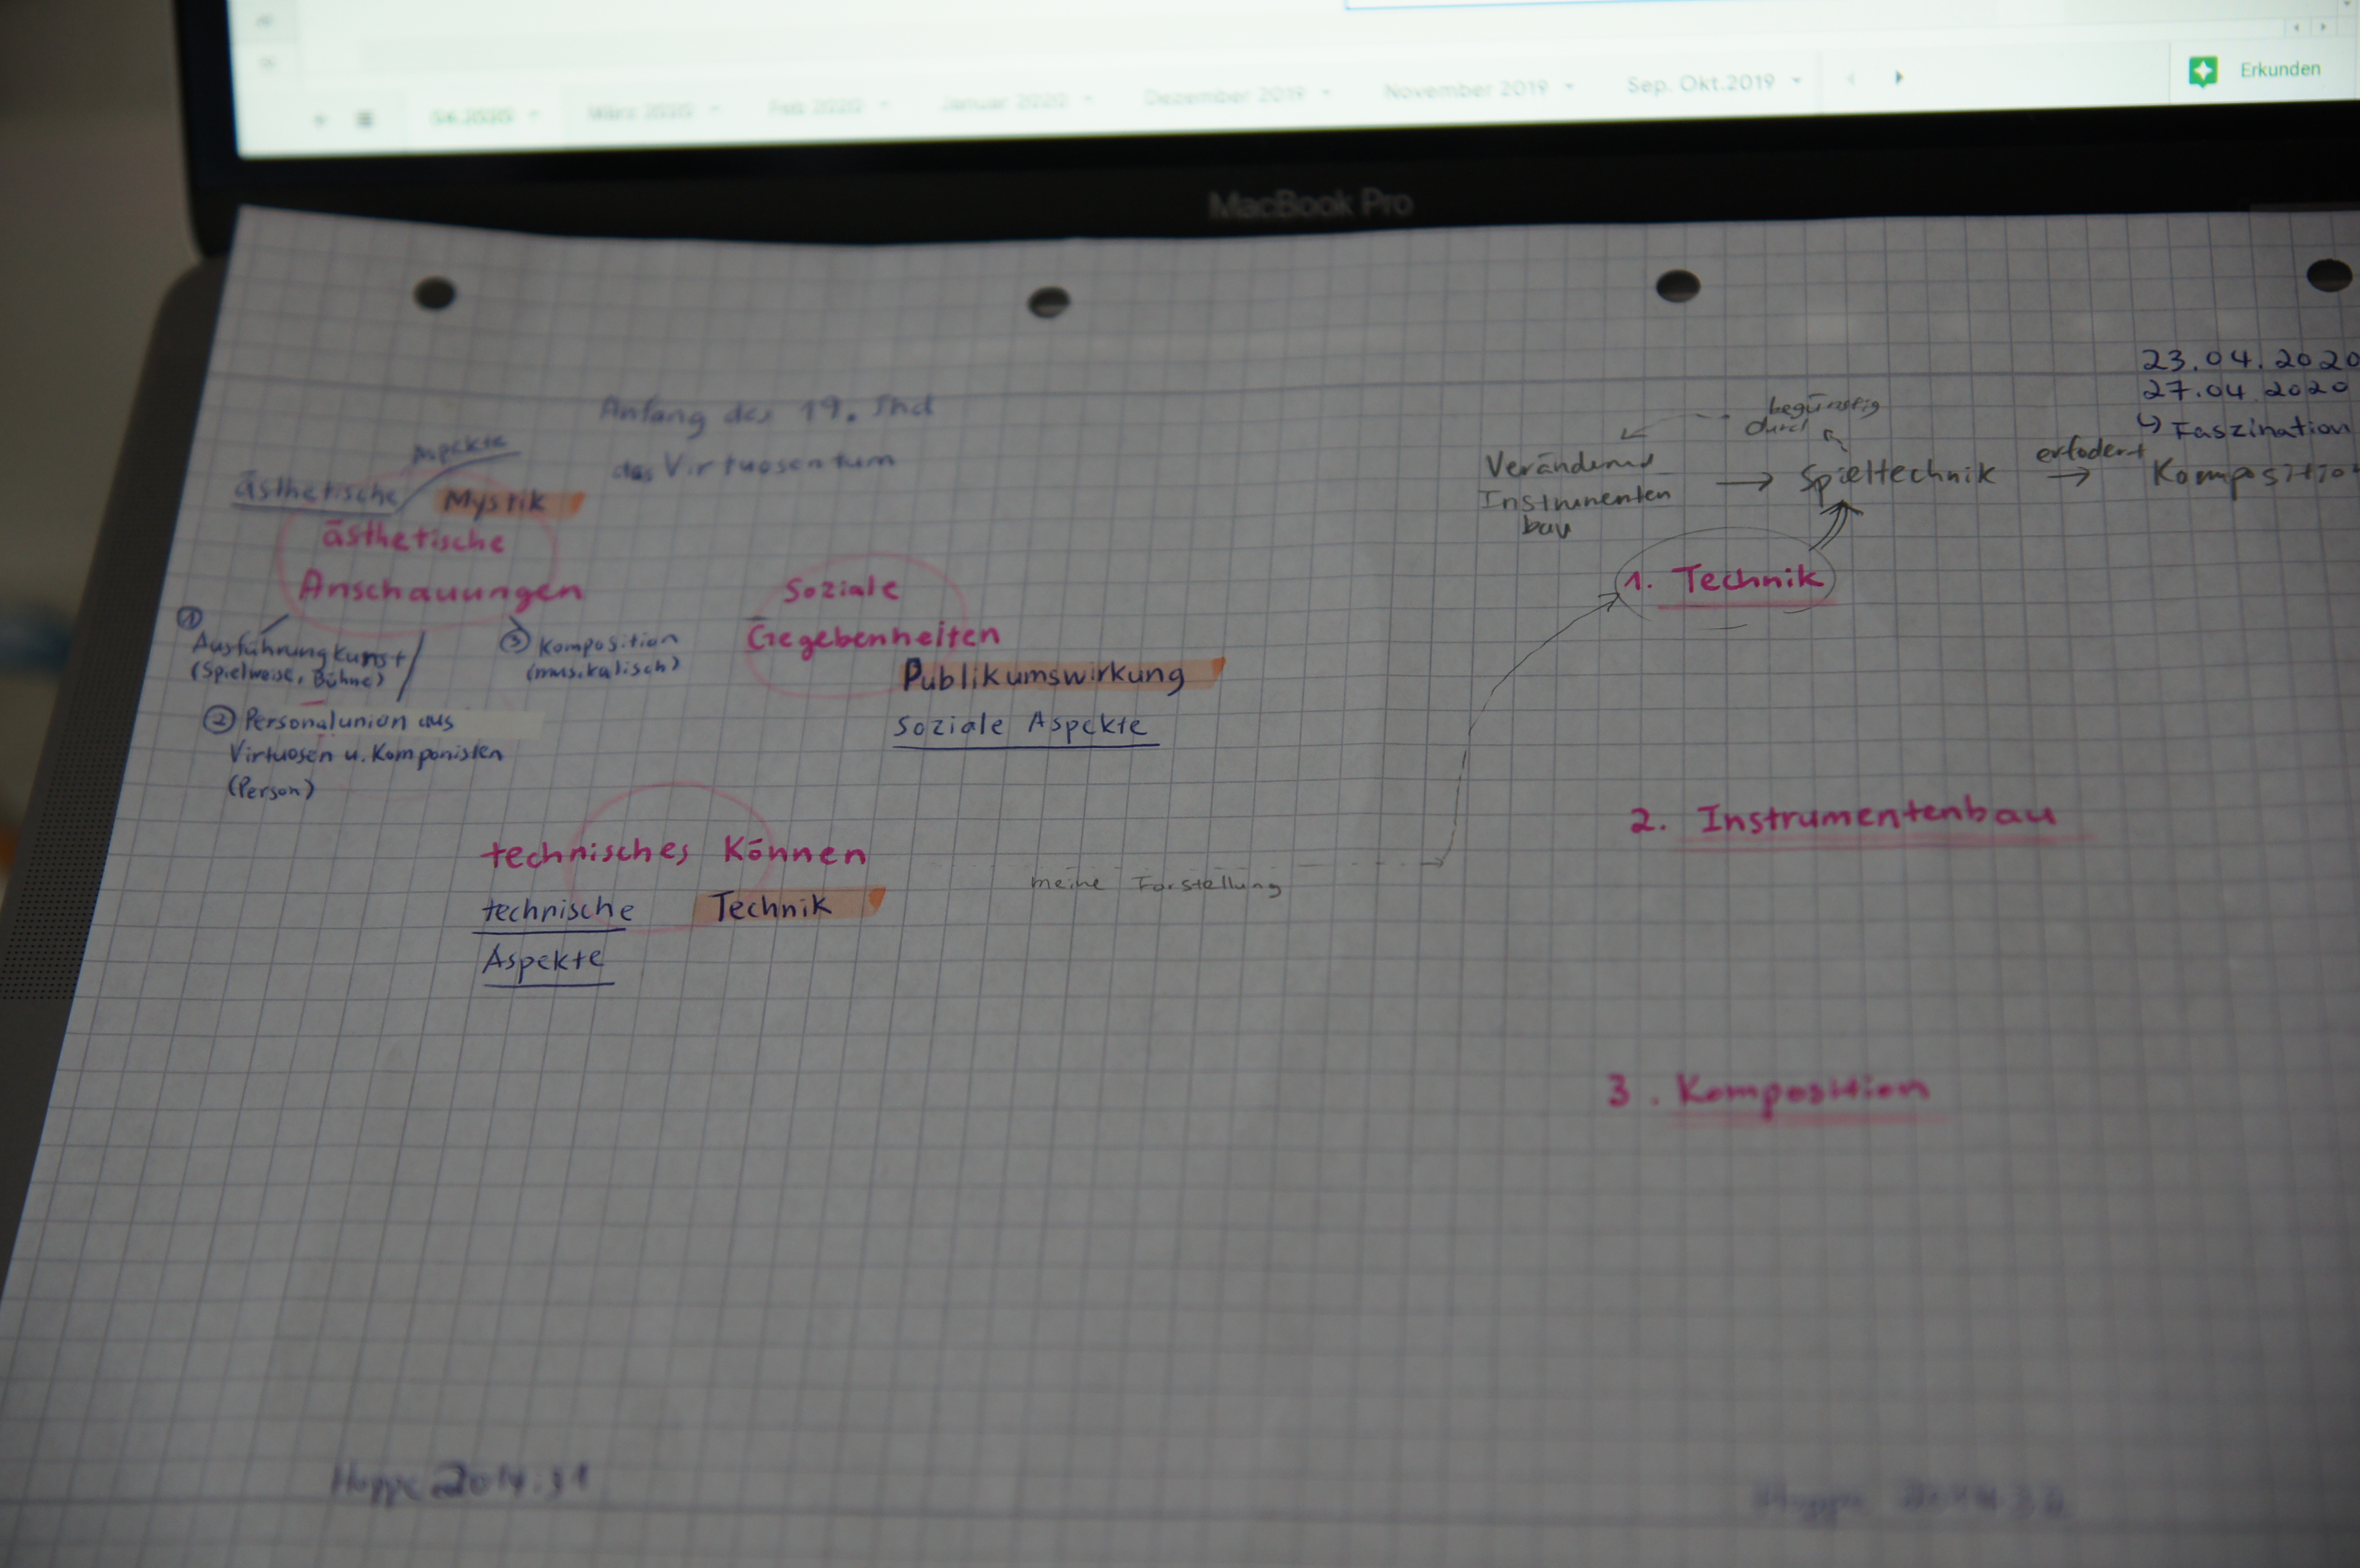 04.2020
März 2020
Feb 2020
Januar 2020
Dezember 2019
November 2019
Sep. Okt.2019
Erkunden
MacBook Pro
23.04.2020
27.04.2020
↳ Faszination
Anfang des 19. Jhd
das Virtuosentum
Aspekte
ästhetische
Mystik
ästhetische
Anschauungen
① Ausführungkunst
(Spielweise, Bühne)
② Personalunion aus
Virtuosen u. Komponisten
(Person)
③ Komposition
(musikalisch)
Soziale
Gegebenheiten
Publikumswirkung
Soziale Aspekte
technisches Können
technische Technik
Aspekte
meine Forstellung
begünstig
durch
Instrumenten
bau
→ Spieltechnik
erfodert
→ Komposition
1. Technik
2. Instrumentenbau
3. Komposition
Hoppe 2014.31